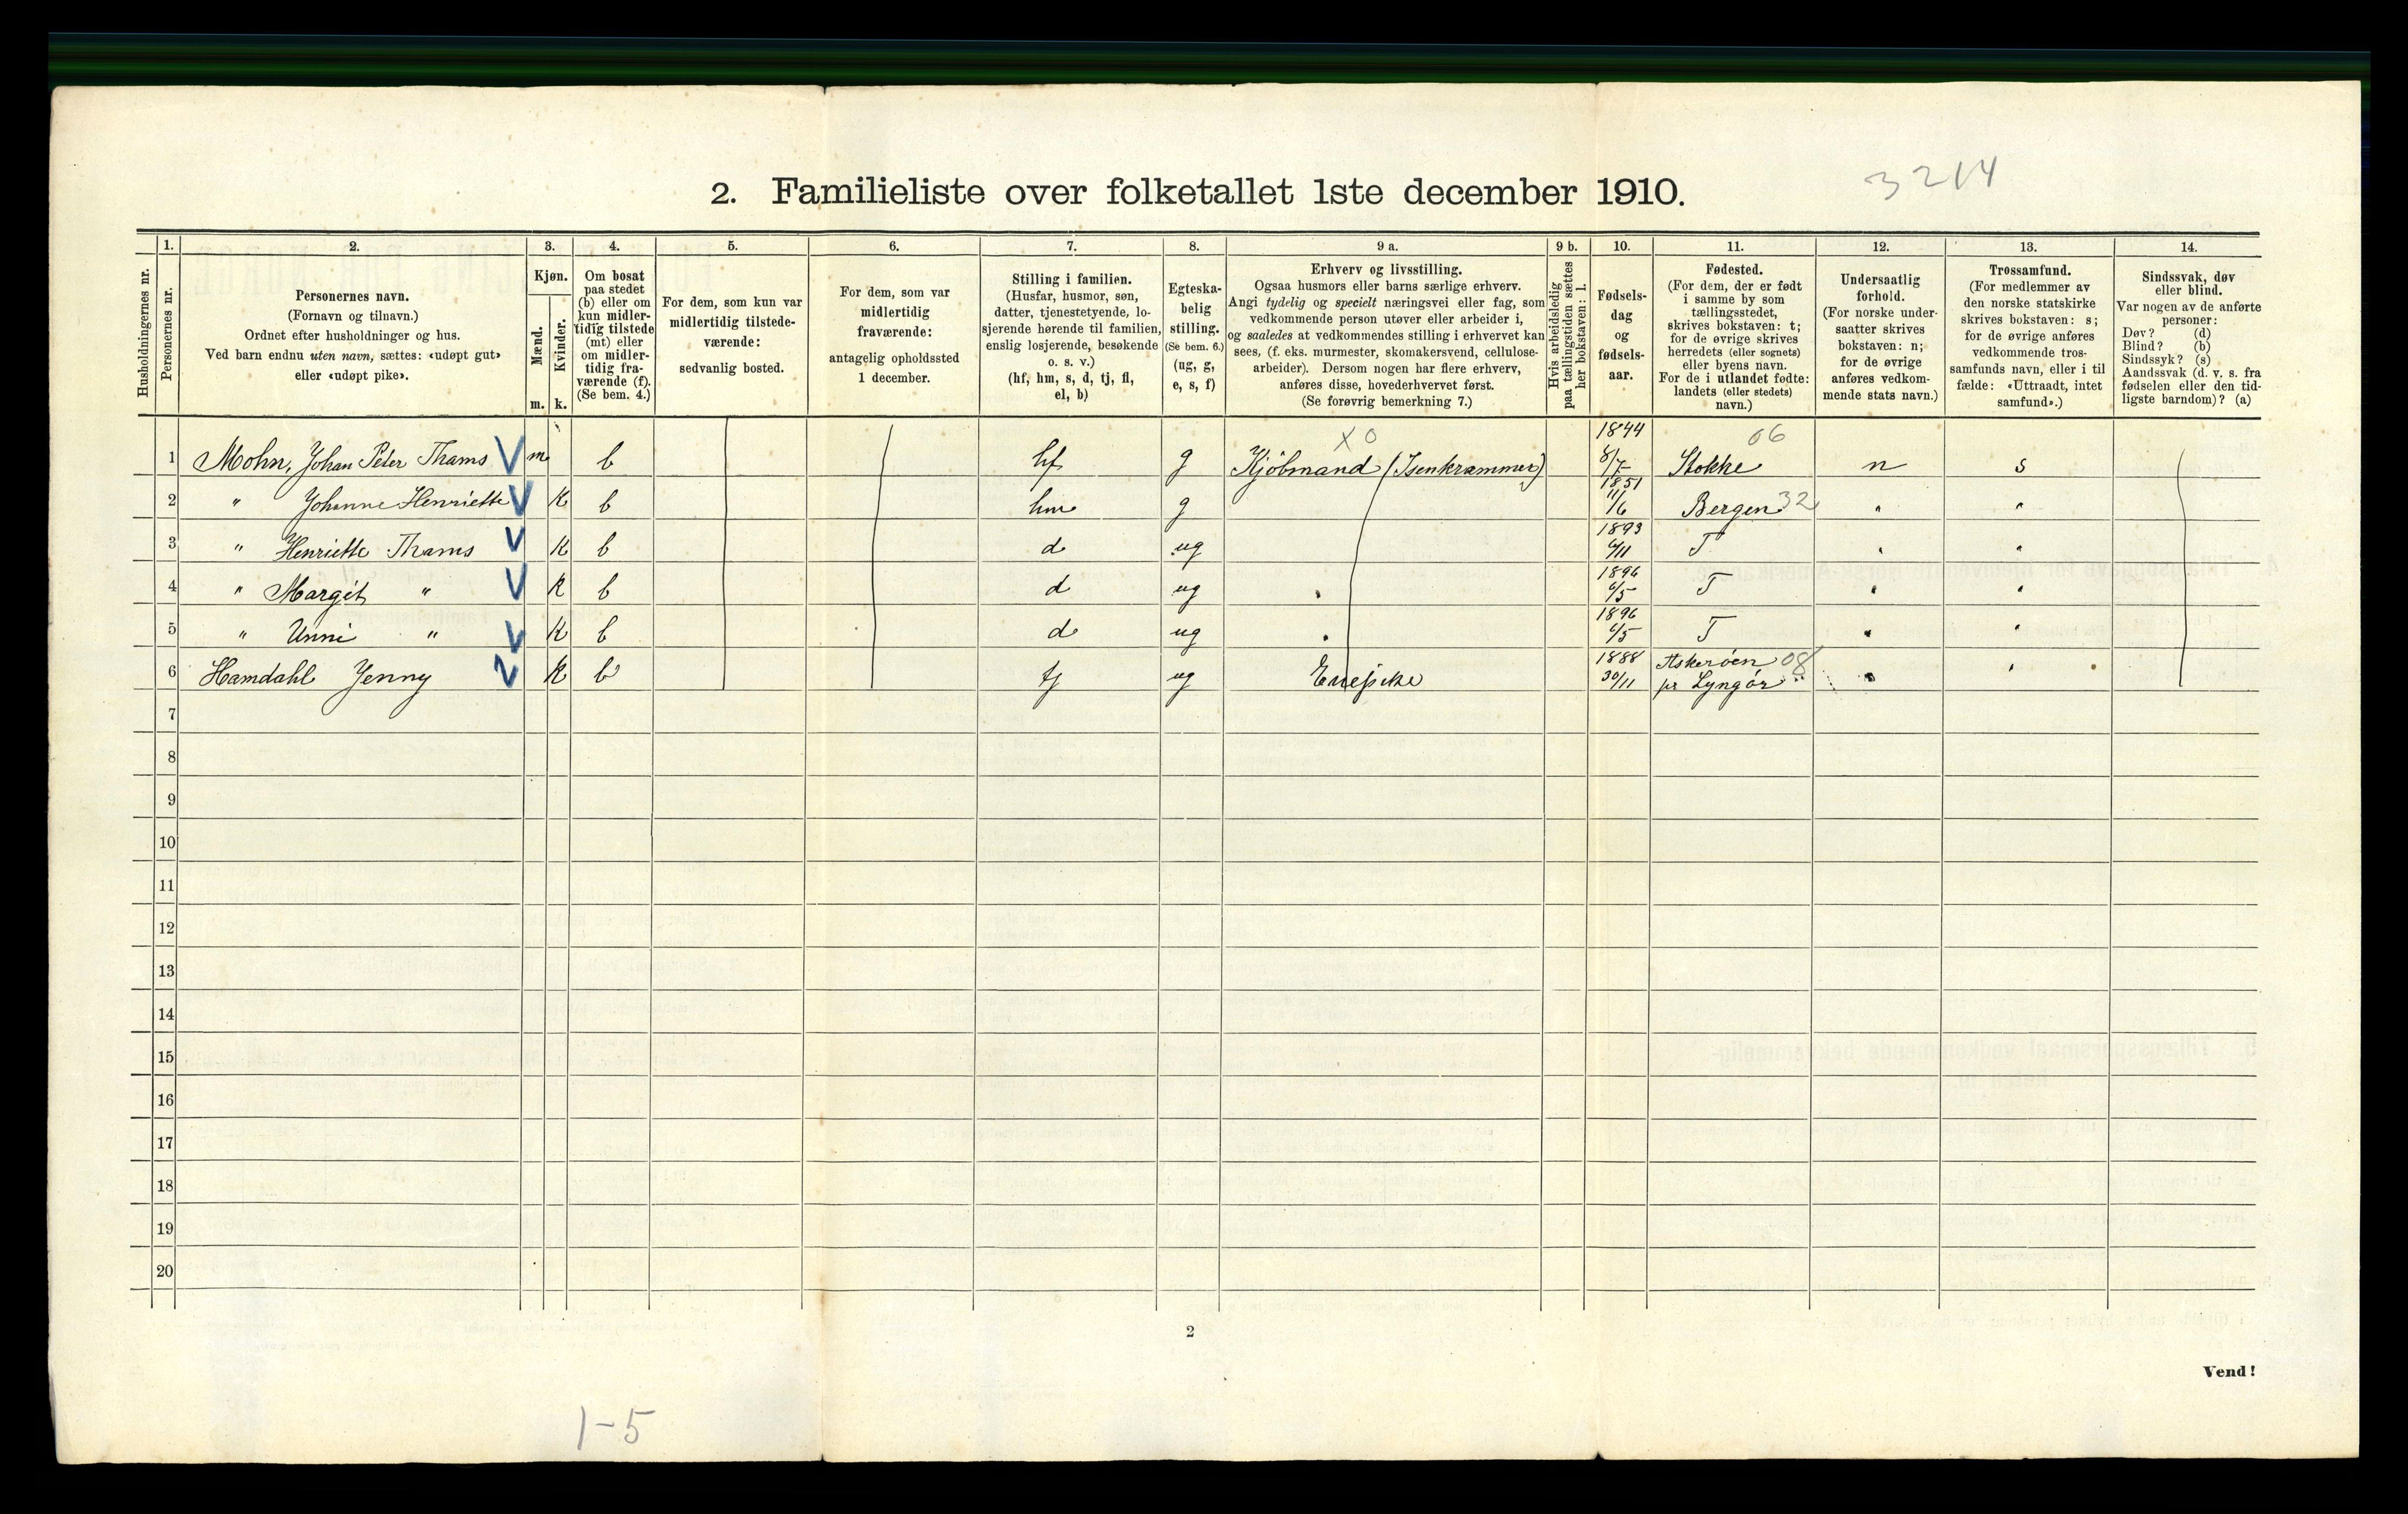 3214
2. Familieliste over folketallet 1ste december 1910.
1. 2. 3. 4. 5. 6. 7. 8. 9 a. 9 b. 10. 11. 12. 13. 14.
Husholdningernes nr.
Personernes nr.
Personernes navn.
(Fornavn og tilnavn.)
Ordnet efter husholdninger og hus.
Ved barn endnu uten navn, sættes: «udøpt gut»
eller «udøpt pike».
Kjøn.
Mænd.
m.
Kvinder.
k.
Om bosat
paa stedet
(b) eller om
kun midler-
tidig tilstede
(mt) eller
om midler-
tidig fra-
værende (f).
(Se bem. 4.)
For dem, som kun var
midlertidig tilstede-
værende:
sedvanlig bosted.
For dem, som var
midlertidig
fraværende:
antagelig opholdssted
1 december.
Stilling i familien.
(Husfar, husmor, søn,
datter, tjenestetyende, lo-
sjerende hørende til familien,
enslig losjerende, besøkende
o. s. v.)
(hf, hm, s, d, tj, fl,
el, b)
Egteska-
belig
stilling.
(Se bem. 6.)
(ug, g,
e, s, f)
Erhverv og livsstilling.
Ogsaa husmors eller barns særlige erhverv.
Angi tydelig og specielt næringsvei eller fag, som
vedkommende person utøver eller arbeider i,
og saaledes at vedkommendes stilling i erhvervet kan
sees, (f. eks. murmester, skomakersvend, cellulose-
arbeider). Dersom nogen har flere erhverv,
anføres disse, hovederhvervet først.
(Se forøvrig bemerkning 7.)
Hvis arbeidsledig
paa tællingstiden sættes
her bokstaven: l.
Fødsels-
dag
og
fødsels-
aar.
Fødested.
(For dem, der er født
i samme by som
tællingsstedet,
skrives bokstaven: t;
for de øvrige skrives
herredets (eller sognets)
eller byens navn.
For de i utlandet fødte:
landets (eller stedets)
navn.)
Undersaatlig
forhold.
(For norske under-
saatter skrives
bokstaven: n;
for de øvrige
anføres vedkom-
mende stats navn.)
Trossamfund.
(For medlemmer av
den norske statskirke
skrives bokstaven: s;
for de øvrige anføres
vedkommende tros-
samfunds navn, eller i til
fælde: «Uttraadt, intet
samfund».)
Sindssvak, døv
eller blind.
Var nogen av de anførte
personer:
Døv? (d)
Blind? (b)
Sindssyk? (s)
Aandssvak (d. v. s. fra
fødselen eller den tid-
ligste barndom)? (a)
X0 1844 06
1 Mohn, Johan Peter Thams V m b hf g Kjöbmand (Isenkrammer) 8/7 Stokke n s
1851
2 " Johanne Henriette V K b hm g 11/6 Bergen 32 " "
1893
3 " Henriette Thams V K b d ug 6/11 T " "
1896
4 " Margit " V K b d ug " 6/5 T " "
1896
5 " Unni " V K b d ug " 6/5 T " "
1888 Askeröen 08
6 Hamdahl Jenny V K b tj ug Enepike 30/11 pr Lyngör " "
7
8
9
10
11
12
13
14
15
16
17
18
19
20
2
Vend!
1-5